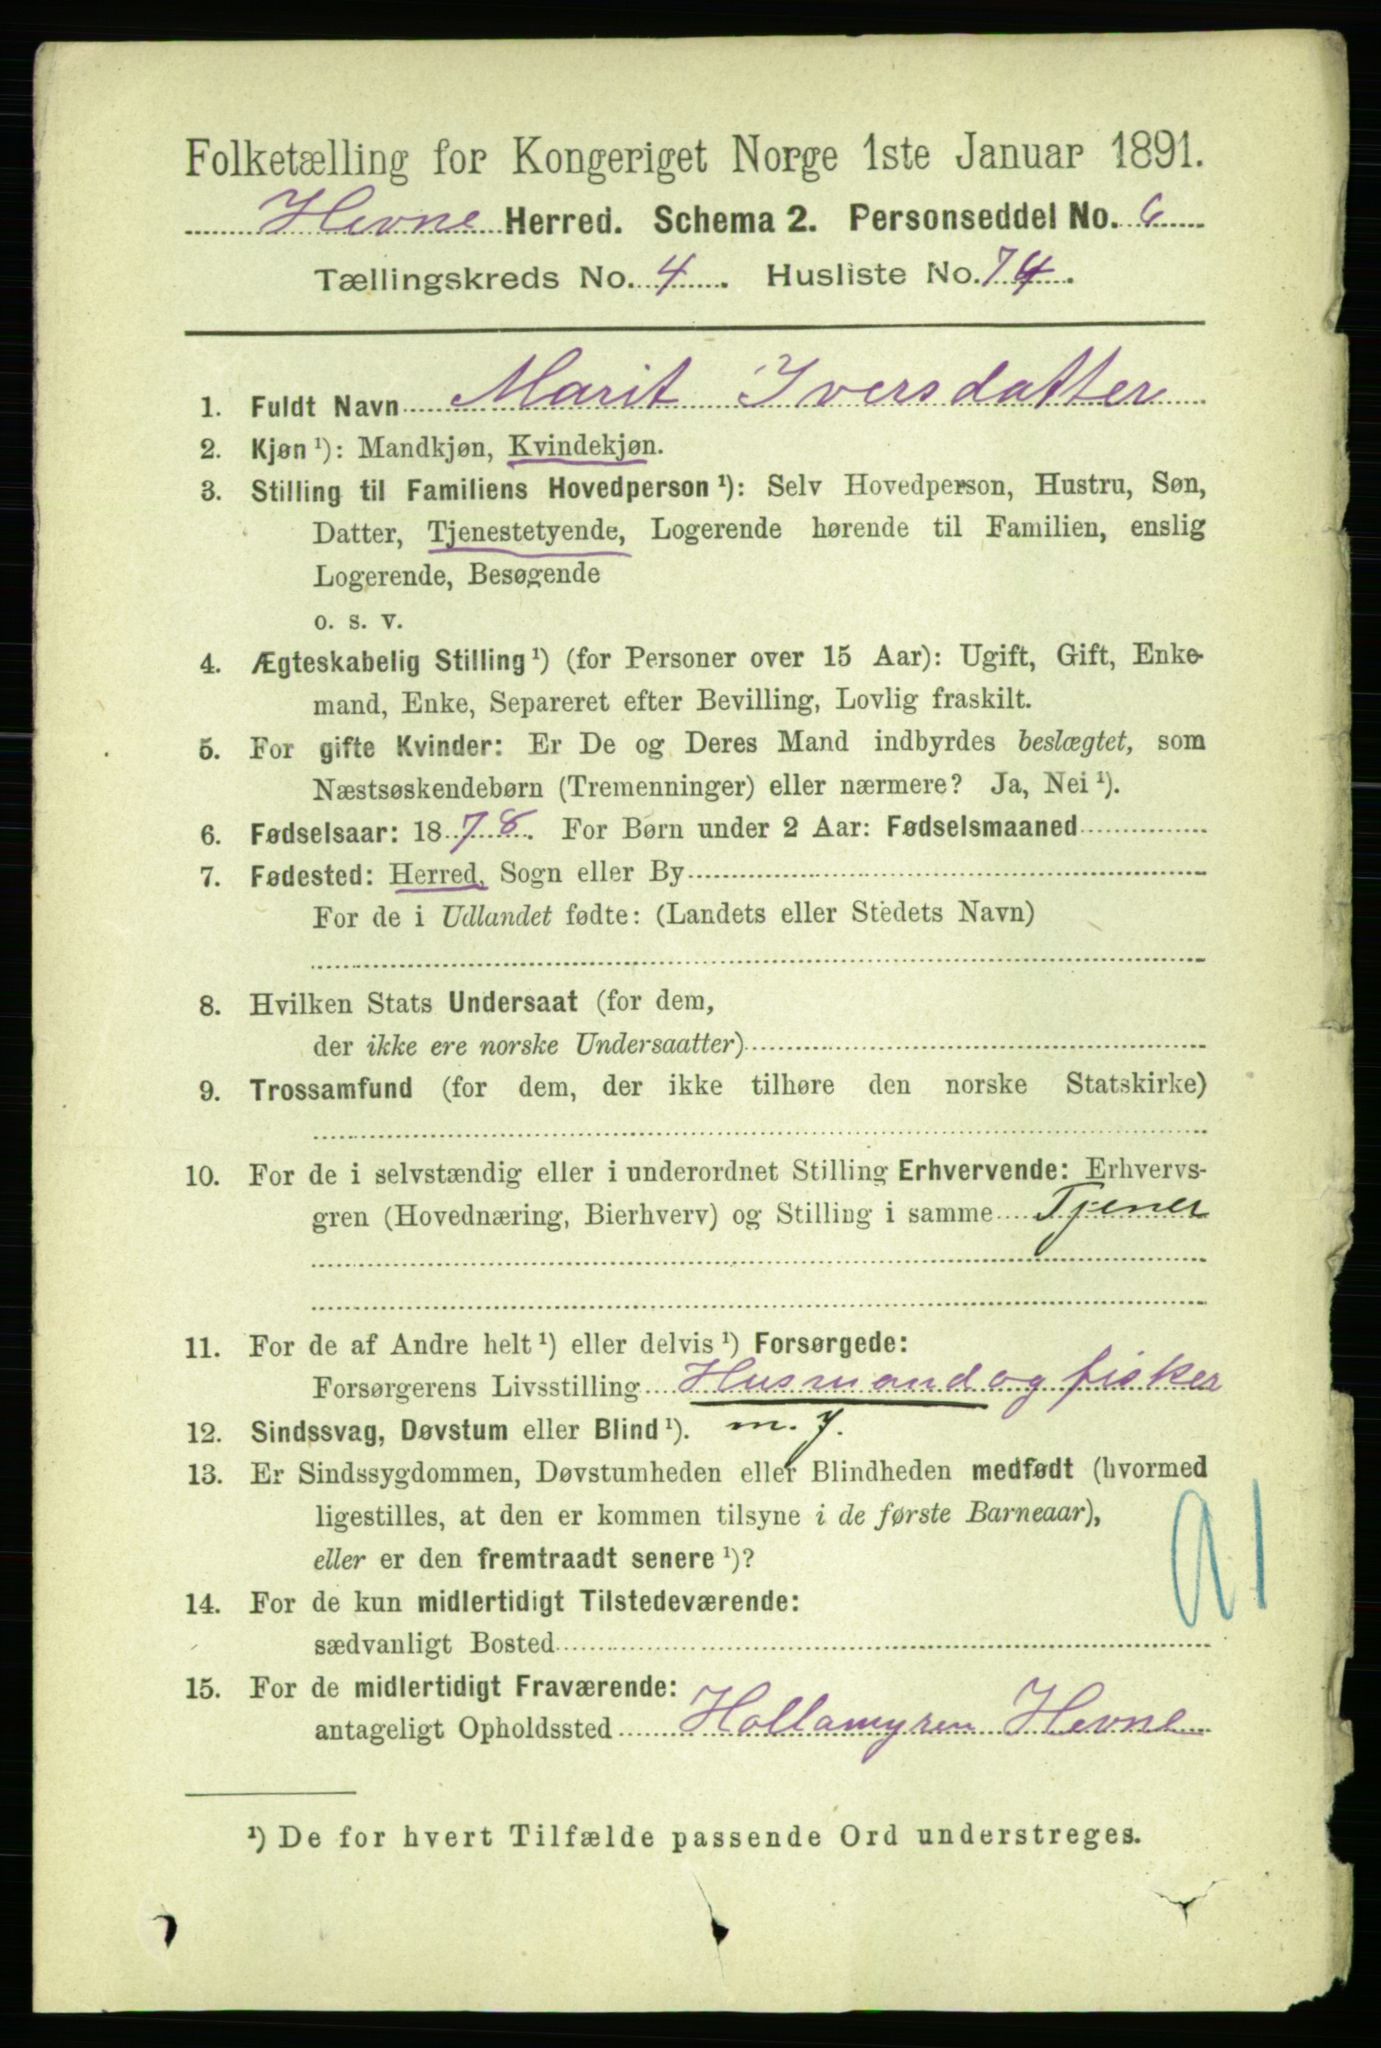 Folketælling for Kongeriget Norge 1ste Januar 1891.
Hevne Herred. Schema 2. Personseddel No. 6
Tællingskreds No. 4. Husliste No. 74.
1. Fuldt Navn Marit Iversdatter
2. Kjøn ¹): Mandkjøn, Kvindekjøn.
3. Stilling til Familiens Hovedperson ¹): Selv Hovedperson, Hustru, Søn,
Datter, Tjenestetyende, Logerende hørende til Familien, enslig
Logerende, Besøgende
o. s. v.
4. Ægteskabelig Stilling ¹) (for Personer over 15 Aar): Ugift, Gift, Enke-
mand, Enke, Separeret efter Bevilling, Lovlig fraskilt.
5. For gifte Kvinder: Er De og Deres Mand indbyrdes beslægtet, som
Næstsøskendebørn (Tremenninger) eller nærmere? Ja, Nei ¹).
6. Fødselsaar: 1878. For Børn under 2 Aar: Fødselsmaaned
7. Fødested: Herred, Sogn eller By
For de i Udlandet fødte: (Landets eller Stedets Navn)
8. Hvilken Stats Undersaat (for dem,
der ikke ere norske Undersaatter)
9. Trossamfund (for dem, der ikke tilhøre den norske Statskirke)
10. For de i selvstændig eller i underordnet Stilling Erhvervende: Erhvervs-
gren (Hovednæring, Bierhverv) og Stilling i samme Tjener
11. For de af Andre helt ¹) eller delvis ¹) Forsørgede:
Forsørgerens Livsstilling Husmand og fisker
12. Sindssvag, Døvstum eller Blind ¹). m. j.
13. Er Sindssygdommen, Døvstumheden eller Blindheden medfødt (hvormed
ligestilles, at den er kommen tilsyne i de første Barneaar),
eller er den fremtraadt senere ¹)?
14. For de kun midlertidigt Tilstedeværende:
sædvanligt Bosted
15. For de midlertidigt Fraværende:
antageligt Opholdssted Hollamyren Hevne
¹) De for hvert Tilfælde passende Ord understreges.